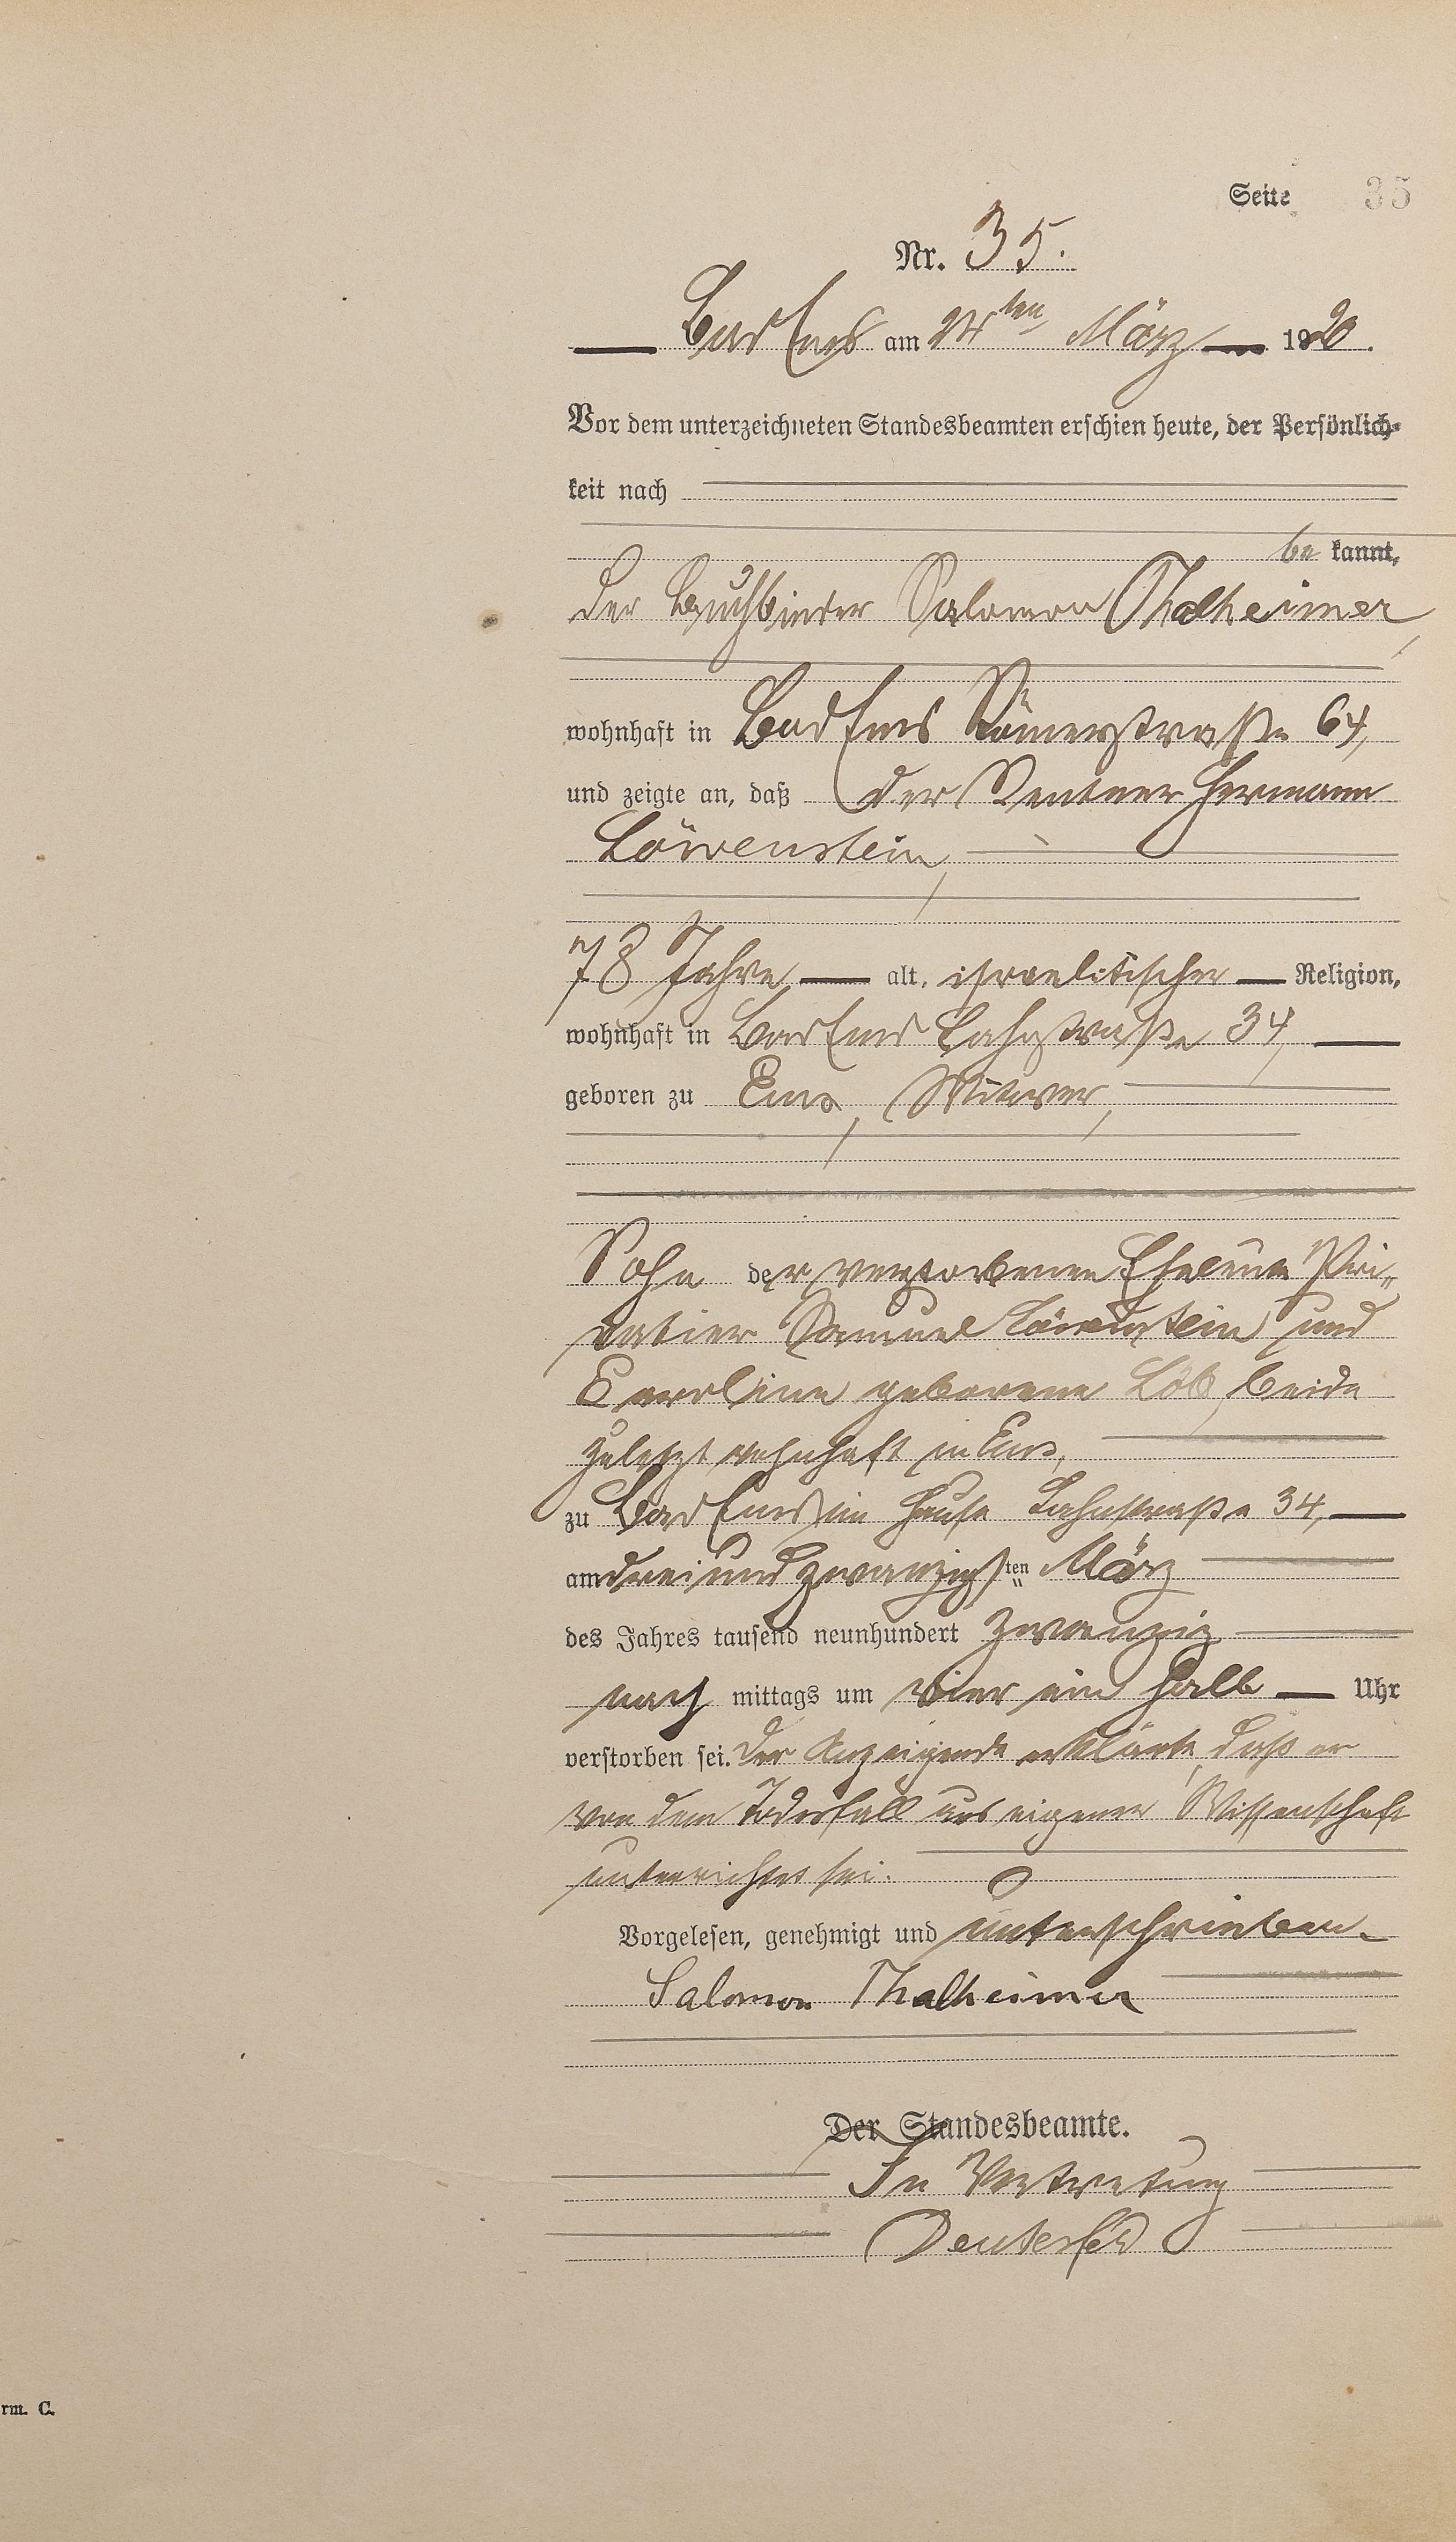 Seite 35
Nr. 35.
Bad Ems am 24ten März 1920.
Vor dem unterzeichneten Standesbeamten erschien heute, der Persönlich-
keit nach
be kannt,
der Buchbinder Salomon Thalheimer,
wohnhaft in Bad Ems Römerstraße 64,
und zeigte an, daß der Rentner Hermann
Löwenstein,
78 Jahre alt, israelitischer Religion,
wohnhaft in Bad Ems Lahnstraße 34,
geboren zu Ems, Witwer,
Sohn der verstorbenen Eheleute Pri-
vatier Samuel Löwenstein und
geborene Löb, beide
zuletzt wohnhaft in Ems,
zu Bad Ems im Hause Lahnstraße 34,
am dreiundzwanzigsten März
des Jahres tausend neunhundert zwanzig
nach mittags um vier ein halb Uhr
verstorben sei. Der Anzeigende erklärte, daß er
von dem Todesfall aus eigener Wissenschaft
unterrichtet sei.
Vorgelesen, genehmigt und unterschrieben.
Salomon Thalheimer
Der Standesbeamte.
In Vertretung
rm. C.